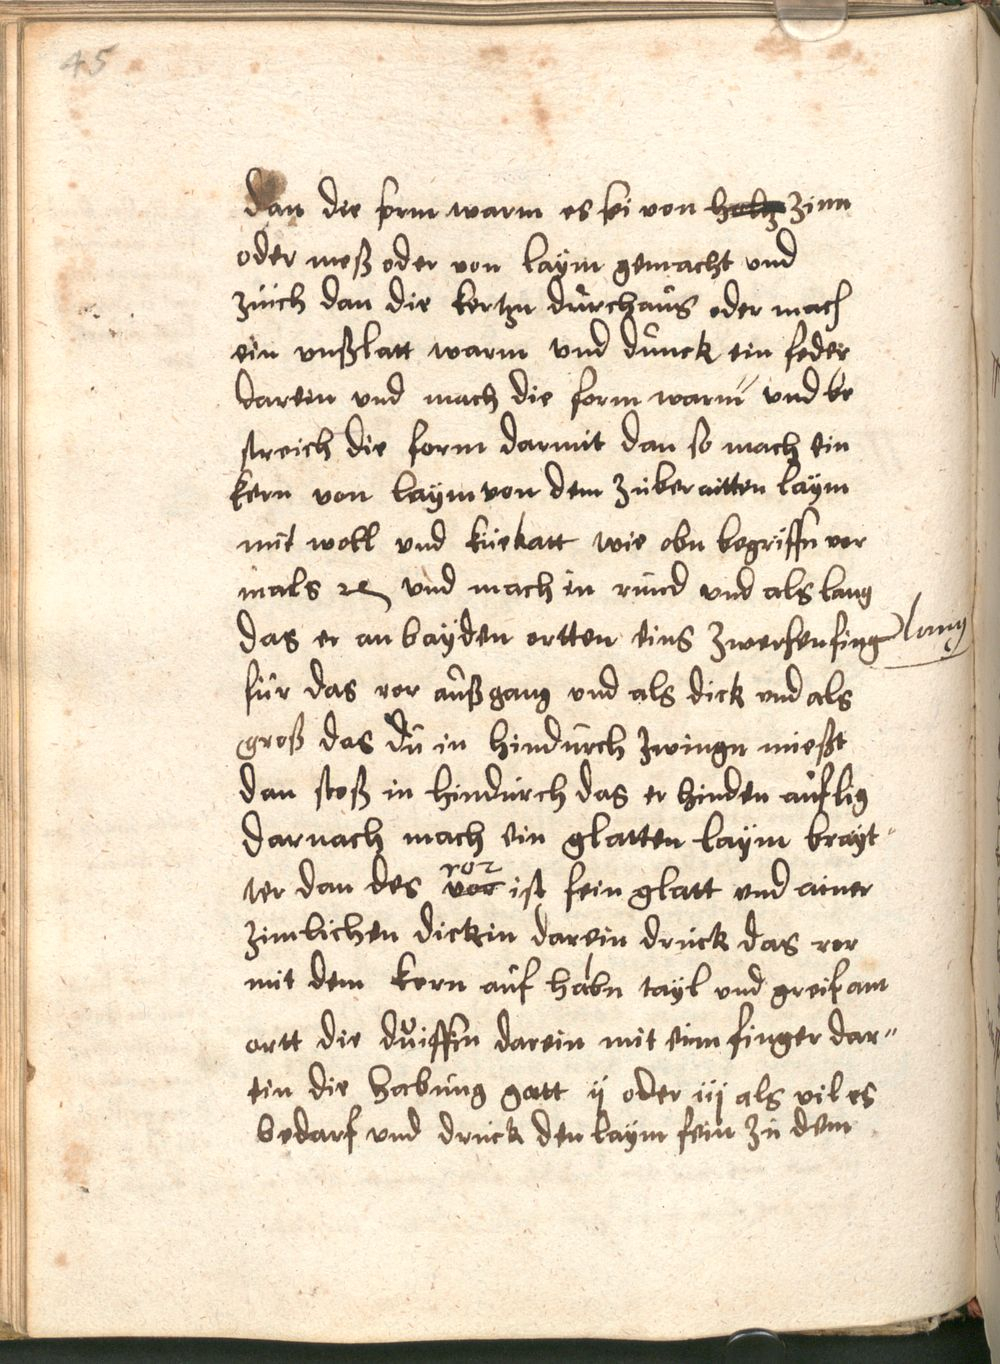 45
dan die form warm es sei von holtz zinn
oder meß oder von laÿm gemacht vnd
zuich dan die kertzn durchaus oder mach
ein vnßlatt warm vnd dunck ein feder
darein vnd mach die form warm vnd be
streich die form darmit dan so mach ein
kern von laÿm von dem zuberaitten laÿm
mit woll vnd küekatt wie obn begriffn vor
mals ꝛc vnd mach in rund vnd als lang
das er an baÿden ortten eins zwerhenfing lang
für das ror außgang vnd als dick vnd als
groß das du in hindurch zwingn mießt
dan stoß in hindurch das er hinden auflig
darnach mach ein glatten laÿm braÿt"
ter dan des vor ror ist fein glatt vnd ainer
zimlichen dickin darein druck das ror
mit dem kern auf halbn taÿl vnd greif am
ortt die darein mit eim finger dar"
ein die habung gatt ij oder iij als vil es
bedarf vnd druck den laÿm fein zu dem